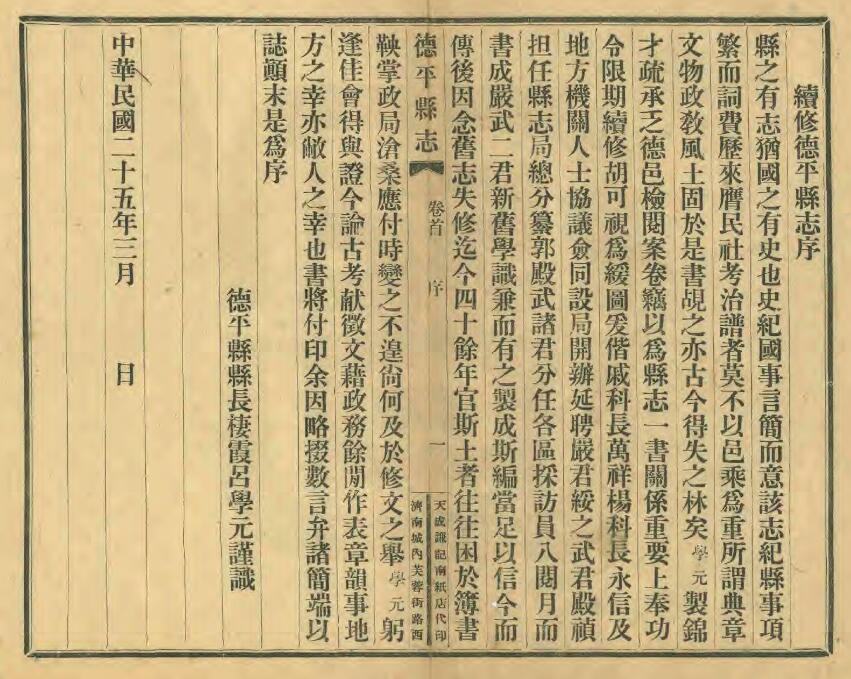 續修德平縣志序
縣之有志猶國之有史也史紀國事言簡而意該志紀縣事項
繁而詞費歷來膺民社考治譜者莫不以邑乘爲重所謂典章
文物政敎風土固於是書覘之亦古今得失之林矣學元製錦
才疏承乏德邑檢閱案卷竊以爲縣志一書關係重要上奉功
令限期續修胡可視爲緩圖爰偕戚科長萬祥楊科長永信及
地方機關人士協議僉同設局開辦延聘嚴君綏之武君殿禎
担任縣志局總分纂郭殿武諸君分任各區採訪員八閱月而
書成嚴武二君新舊學識兼而有之製成斯編當足以信今而
傳後因念舊志失修迄今四十餘年官斯土者往往困於簿書
德平縣志
卷首
序
一
天成謙記南紙店代印
濟南城內芙蓉街路西
鞅掌政局滄桑應付時變之不遑尙何及於修文之舉學元躬
逢佳會得與證今論古考献徵文藉政務餘閒作表章韻事地
方之幸亦敝人之幸也書將付印余因略掇數言弁諸簡端以
誌顚末是爲序
德平縣縣長棲霞呂學元謹識
中華民國二十五年三月　日